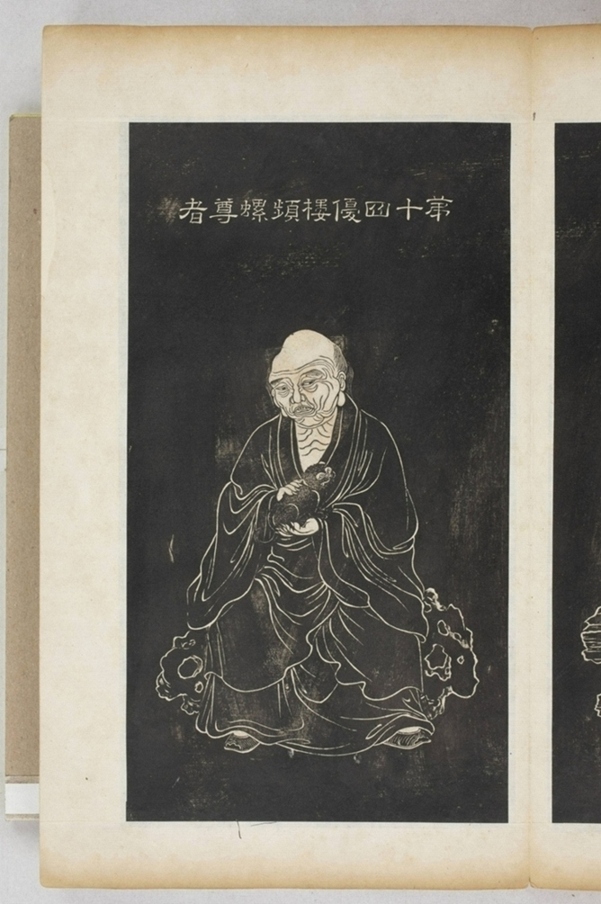 第十四優楼頻螺尊者